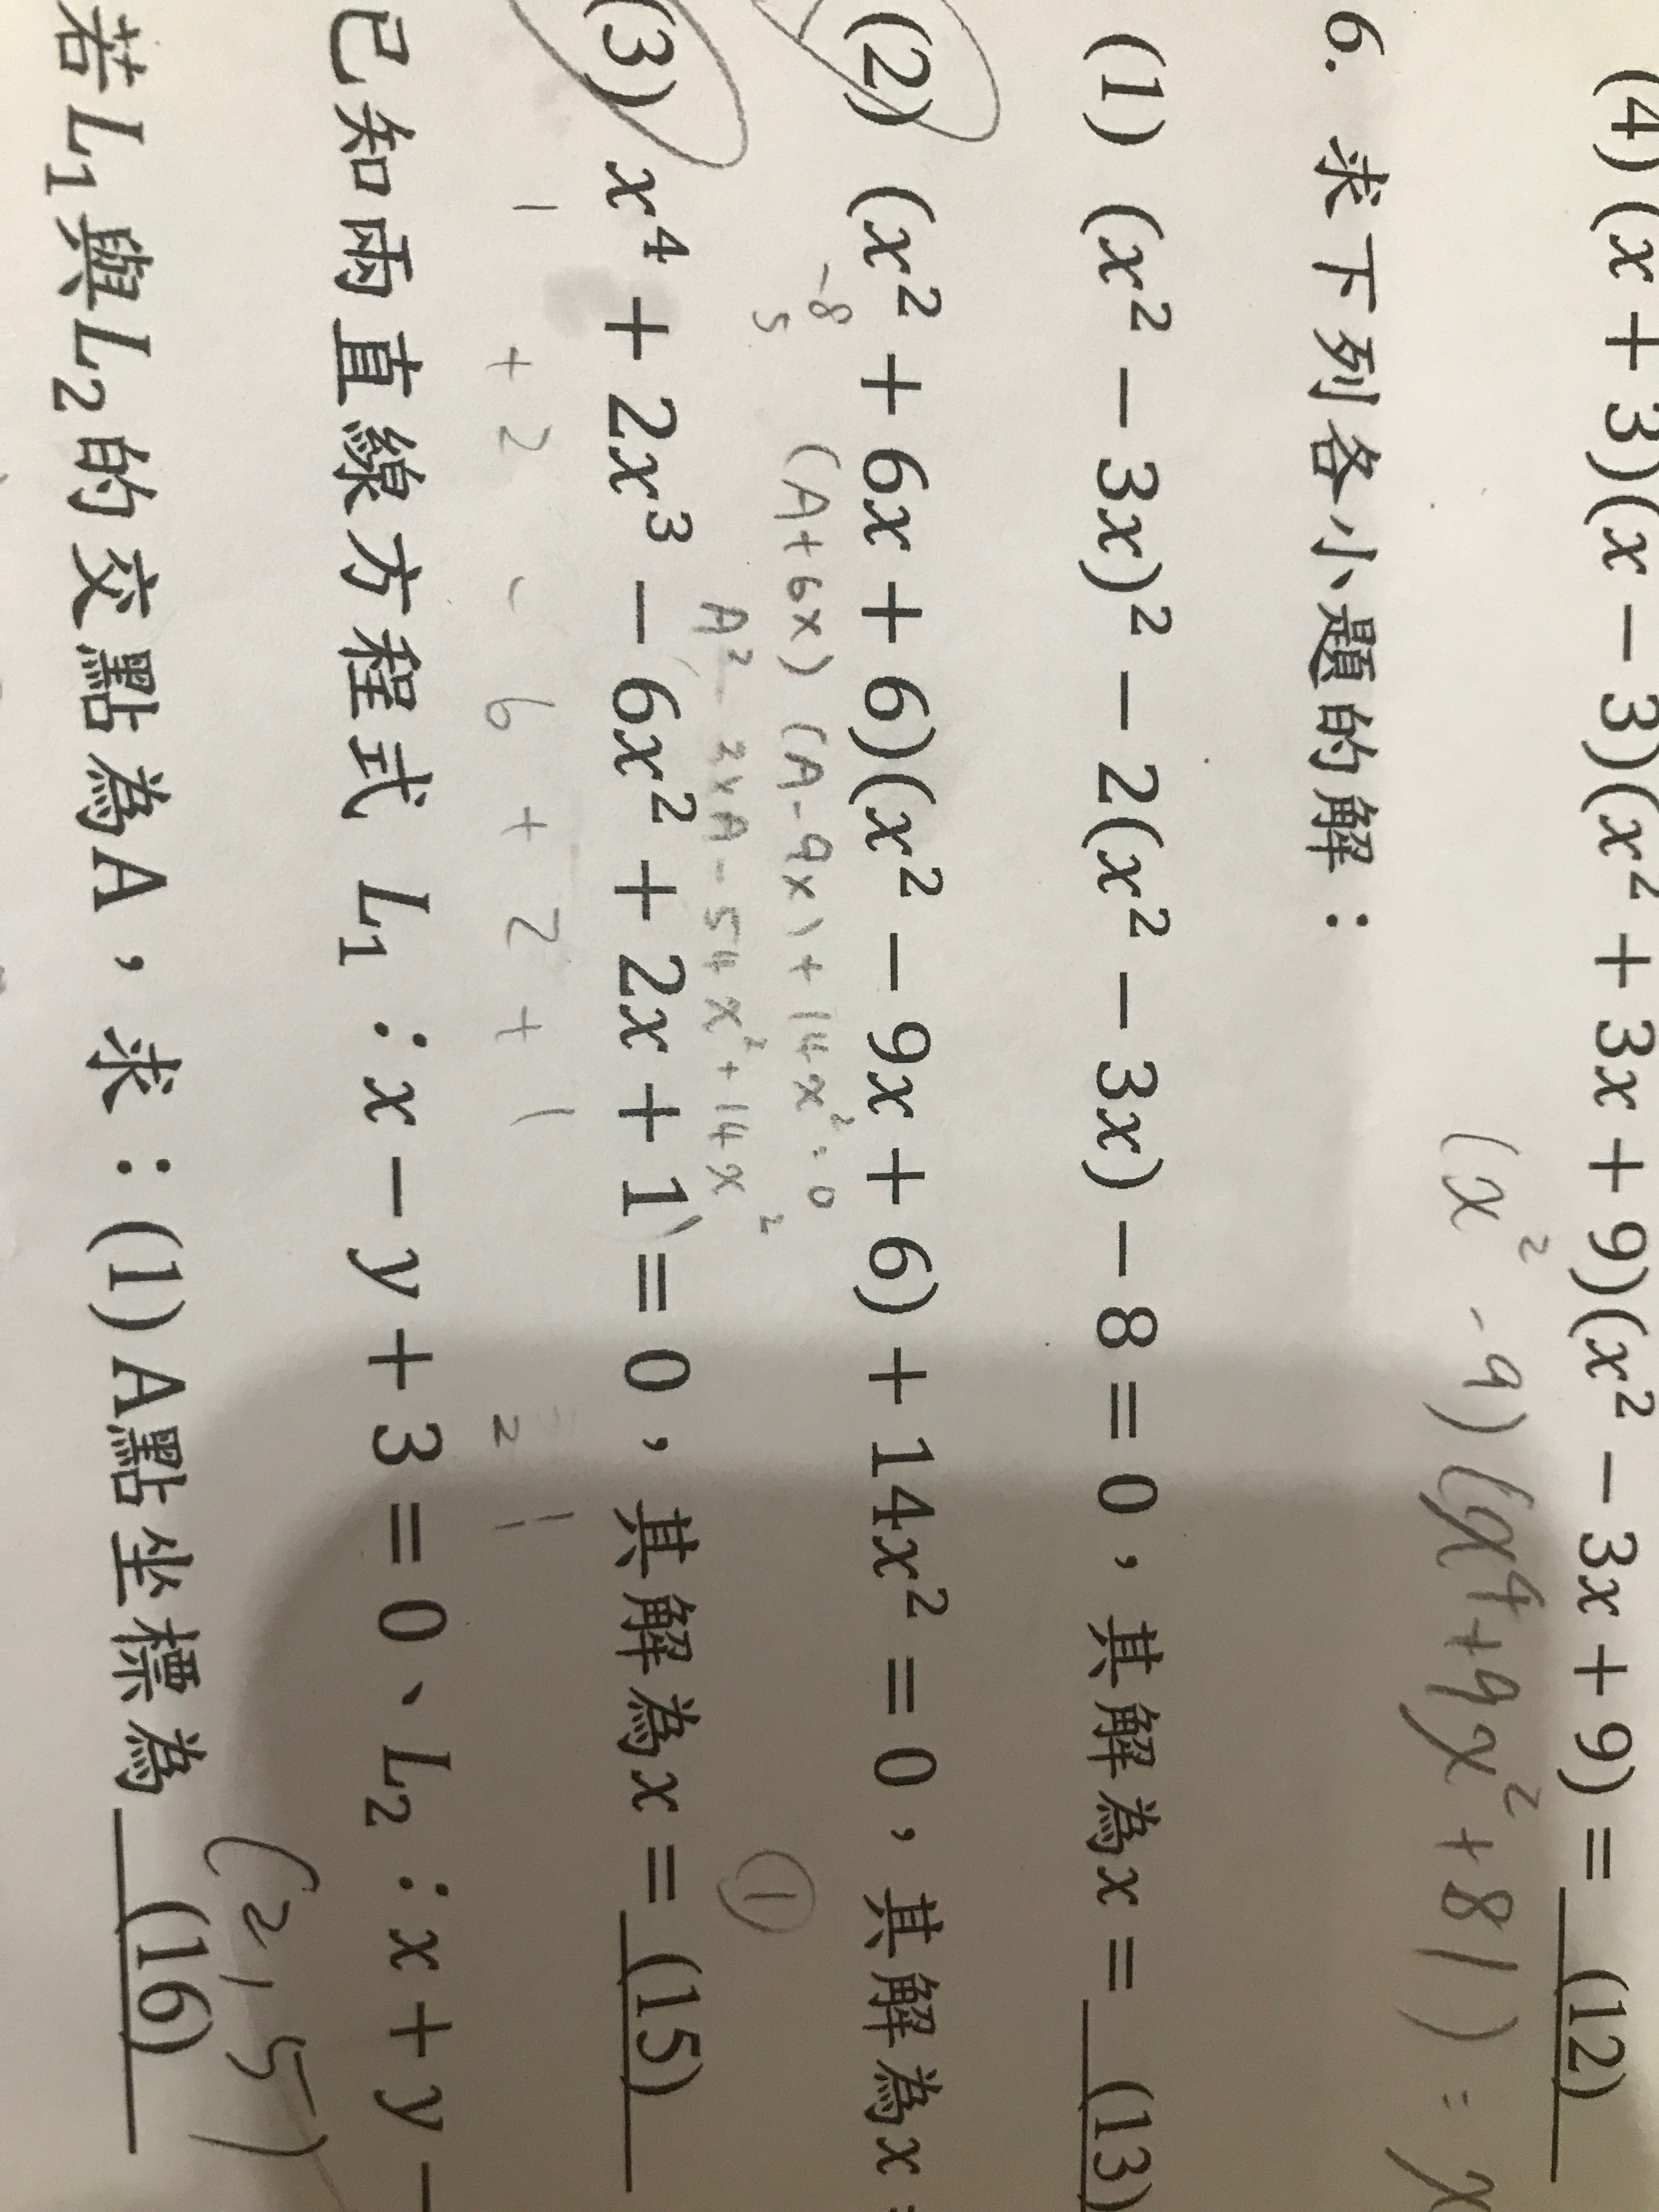 (4) (x + 3)(x − 3)(x² + 3x + 9)(x² − 3x + 9) = (12)
(x² - 9) (x⁴ + 9x² + 81) = x
6. 求下列各小題的解：
(1) (x² − 3x)² − 2(x² − 3x) − 8 = 0，其解為x = (13)
(2) (x² + 6x + 6)(x² − 9x + 6) + 14x² = 0，其解為x =
-8
5
(A+6x) (A-9x) + 14x² = 0
A² - 3xA - 54x² + 14x²
①
(3) x⁴ + 2x³ − 6x² + 2x + 1 = 0，其解為x = (15)
1 + 2 - 6 + 2 + 1
已知兩直線方程式 L₁：x − y + 3 = 0、L₂：x + y −
(2, 5)
若L₁與L₂的交點為A，求：(1) A點坐標為 (16)